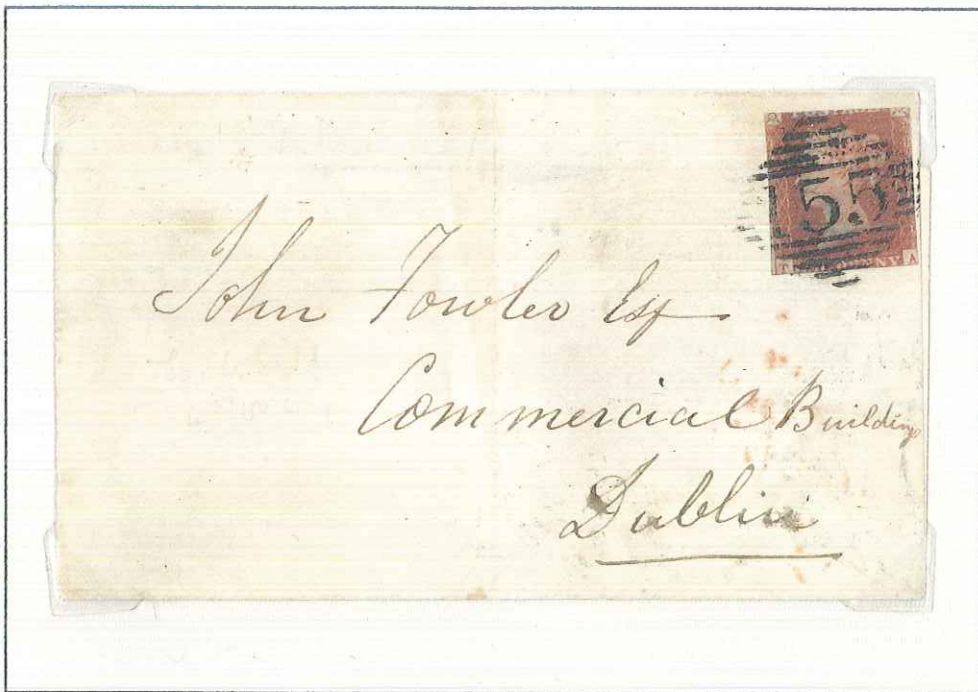 55
ONE PENNY
T A
John Fowler Esq
Commercial Buildings
Dublin